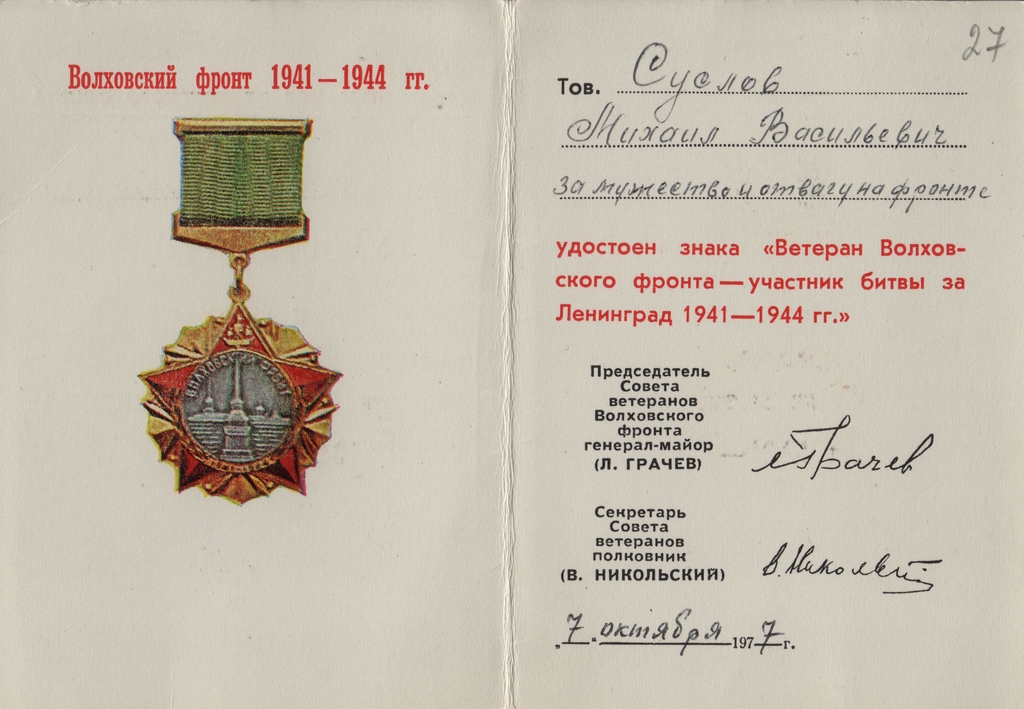 Волховский фронт 1941 — 1944 гг.
ВОЛХОВСКИЙ ФРОНТ
27
Тов. Суслов
Михаил Васильевич
за мужество и отвагу на фронте
удостоен знака «Ветеран Волхов-
ского фронта — участник битвы за
Ленинград 1941—1944 гг.»
Председатель
Совета
ветеранов
Волховского
фронта
генерал-майор
(Л. ГРАЧЕВ)
лГрачев
Секретарь
Совета
ветеранов
полковник
(В. НИКОЛЬСКИЙ)
В. Никольский
„7“ октября 1977 г.